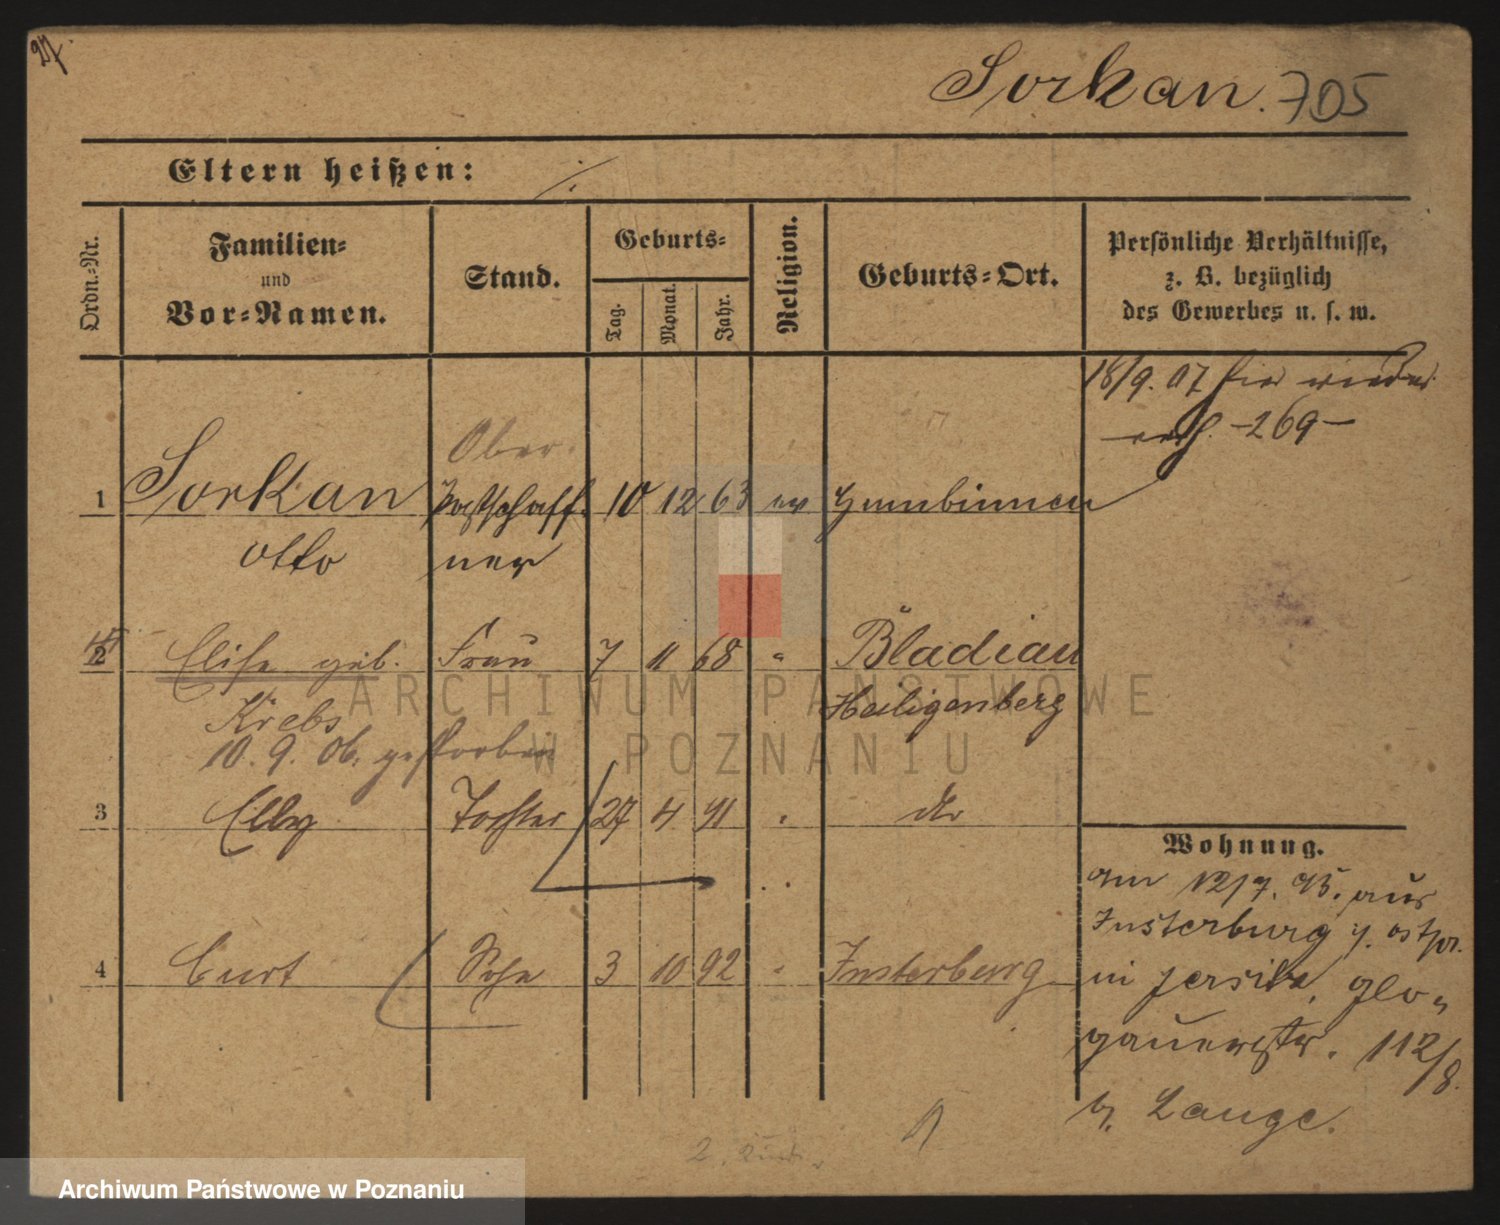 27.
Sorkan. 705
Eltern heißen: ./.
Ordn.-Nr.
Familien-
und
Vor-Namen.
Stand.
Geburts-
Tag.
Monat.
Jahr.
Religion.
Geburts-Ort.
Persönliche Verhältnisse,
z. B. bezüglich
des Gewerbes u. s. w.
18/9. 07 hier wieder
-269-
Ober
1 Sorkan Postschaff- 10 12 63 ev Gumbinnen
Otto ner
2 Elise geb. Frau 7 11 68 " Bladiau
Krebs Heiligenberg
10. 9. 06. gestorben
3 Elly Tochter 27 4 91 " do
Wohnung.
am 12/7. 95. aus
Insterburg i. Ostpr.
4 Curt Sohn 3 10 92 " Insterburg
in Jersitz, Glo-
gauerstr. 112/8.
b. Lange.
ARCHIWUM PAŃSTWOWE
W POZNANIU
Archiwum Państwowe w Poznaniu